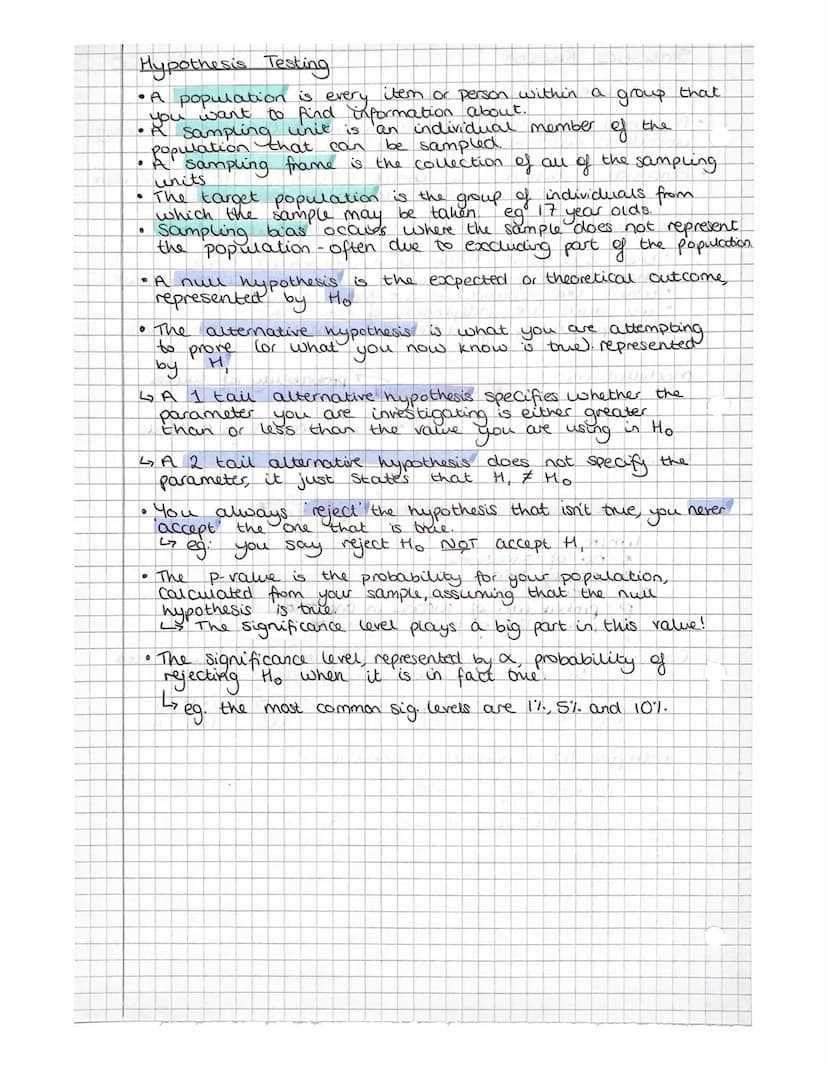 Hypothesis Testing
• A population is every item or person within a group that
you want to find information about.
• A sampling unit is an individual member of the
population that can be sampled.
• A sampling frame is the collection of all of the sampling
units
• The target population is the group of individuals from
which the sample may be taken eg 17 year olds.
• Sampling bias occurs where the sample does not represent
the population - often due to excluding part of the population
• A null hypothesis is the expected or theoretical outcome,
represented by H₀
• The alternative hypothesis is what you are attempting
to prove (or what you now know is true). represented
by H₁
↳ A 1 tail alternative hypothesis specifies whether the
parameter you are investigating is either greater
than or less than the value you are using in H₀
↳ A 2 tail alternative hypothesis does not specify the
parameter, it just states that H₁ ≠ H₀
• You always 'reject' the hypothesis that isn't true, you never
'accept' the one that is true.
↳ eg: you say reject H₀ NOT accept H₁
• The p-value is the probability for your population,
calculated from your sample, assuming that the null
hypothesis is true.
↳ The significance level plays a big part in this value!
• The significance level, represented by α, probability of
rejecting H₀ when it is in fact true.
↳ eg. the most common sig. levels are 1%, 5% and 10%.